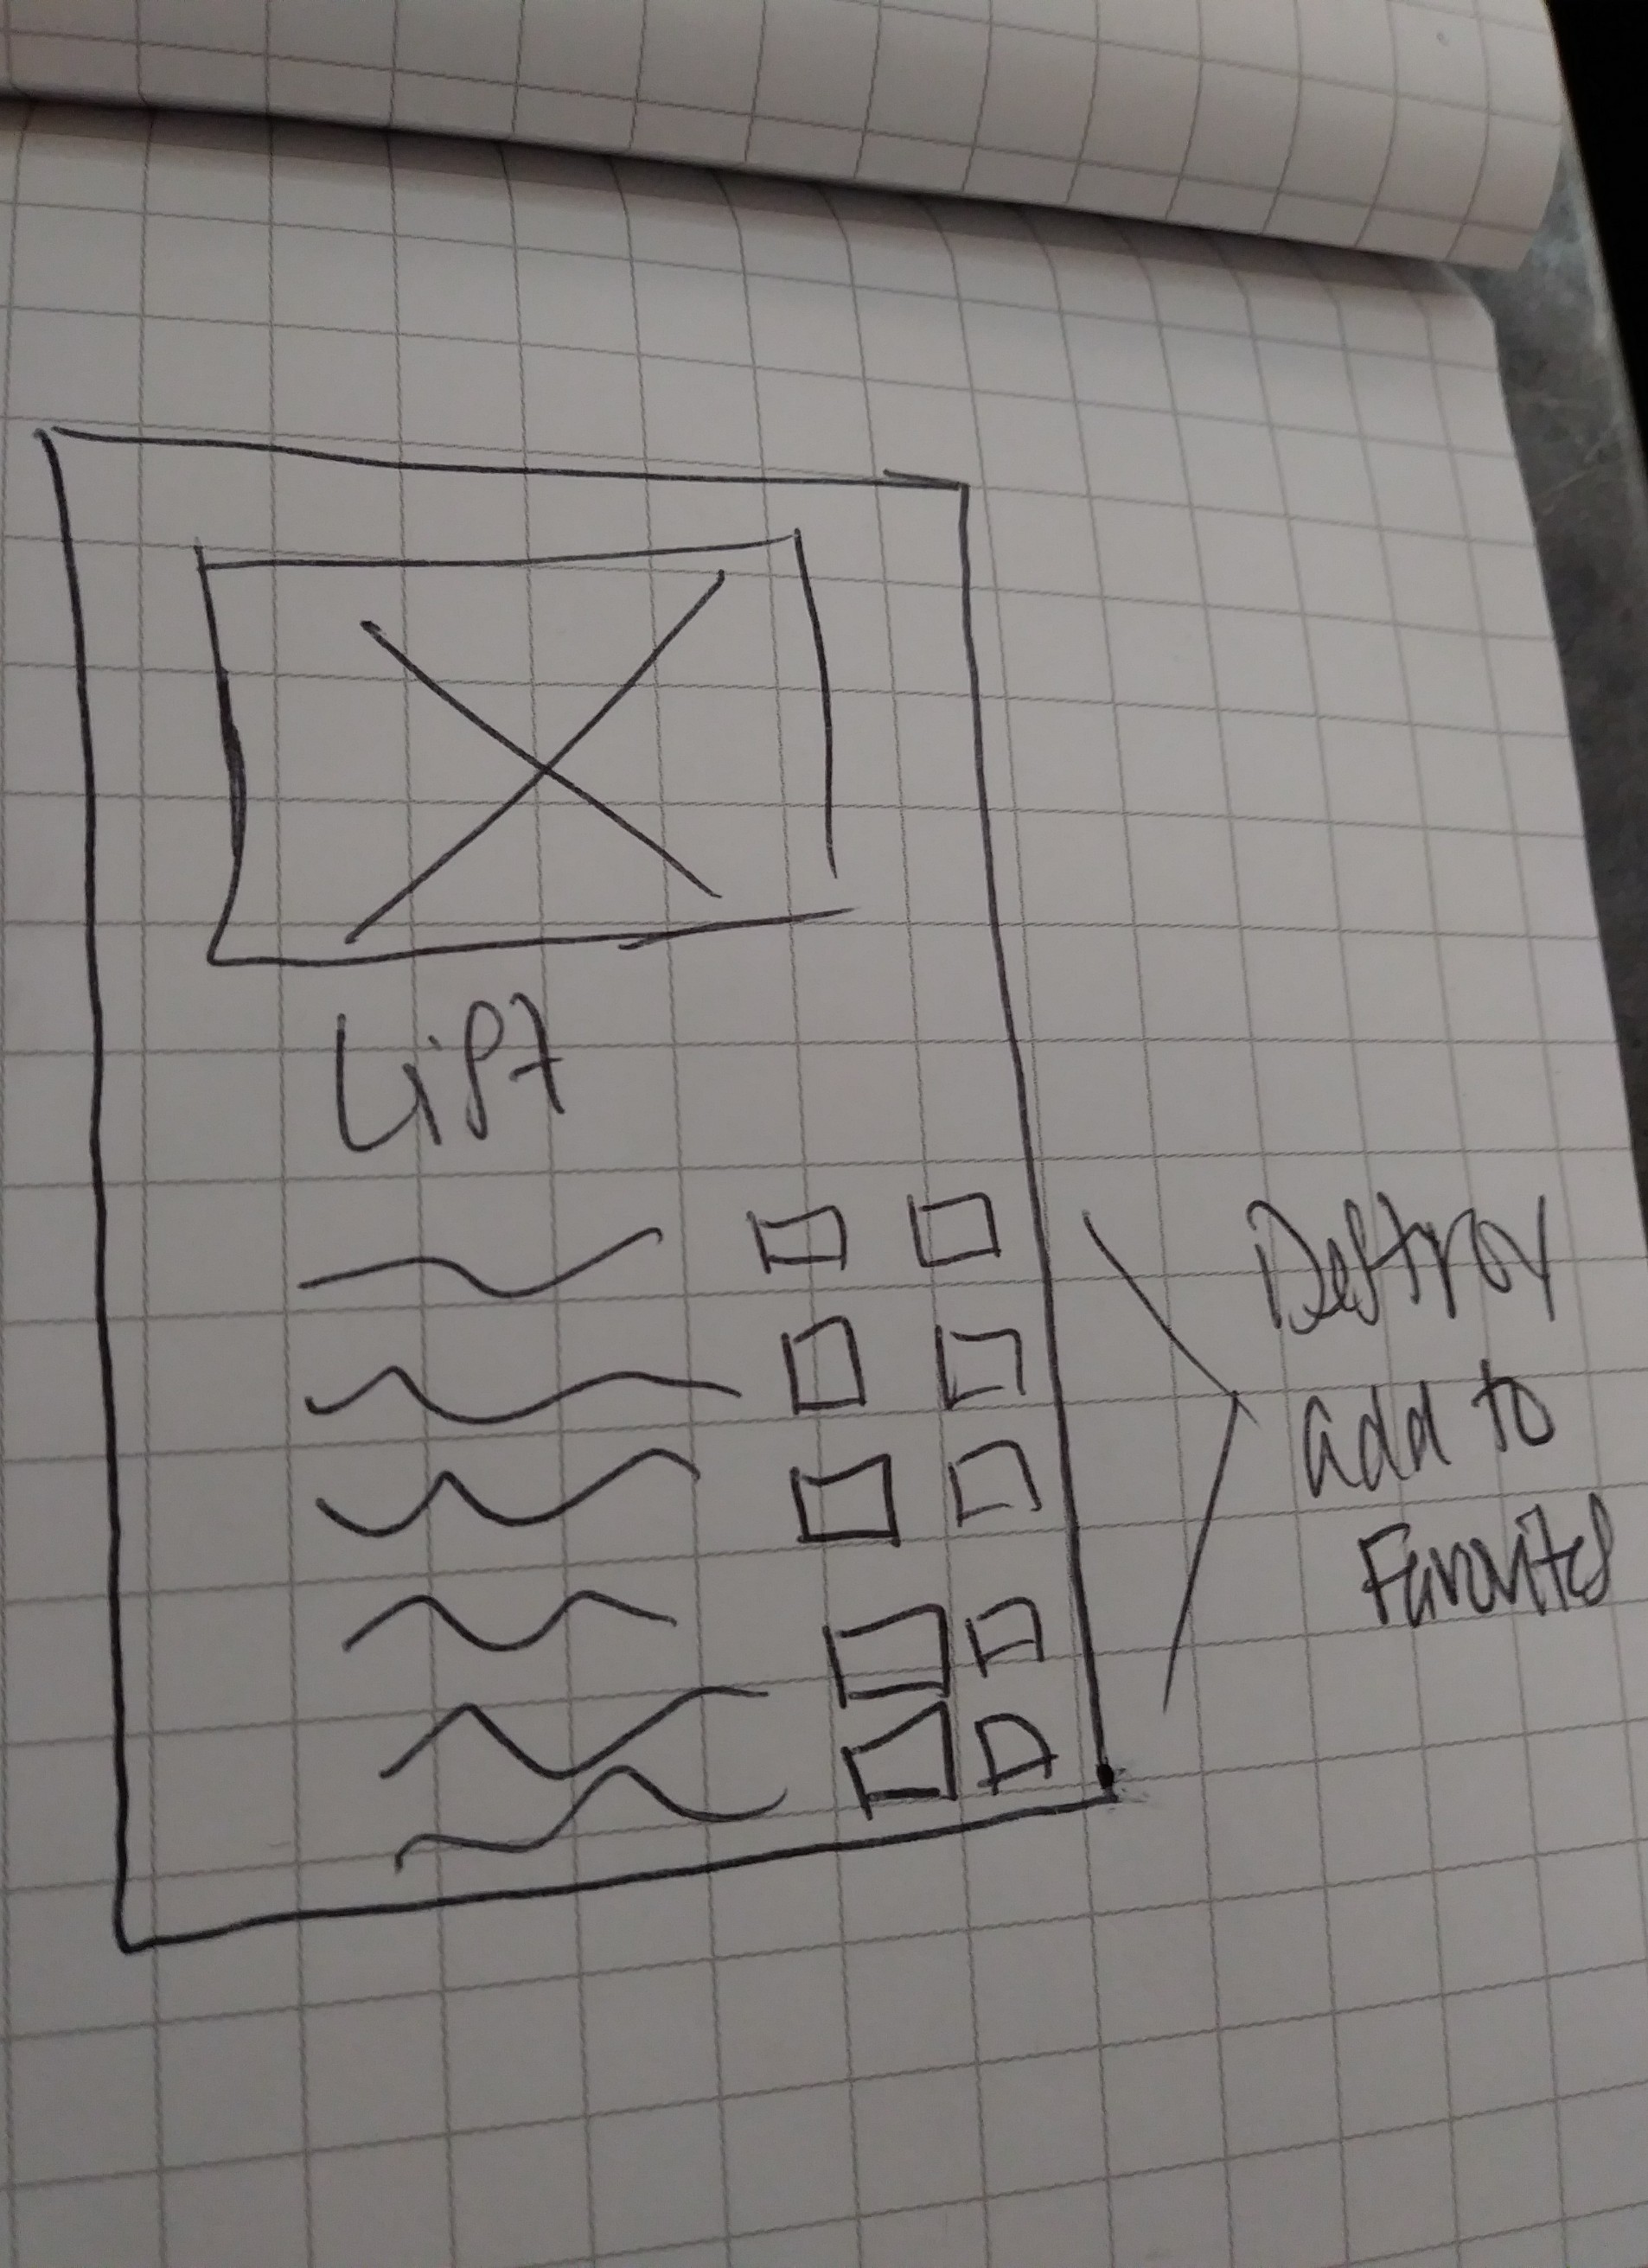 Lift
Destroy
add to
Favorites